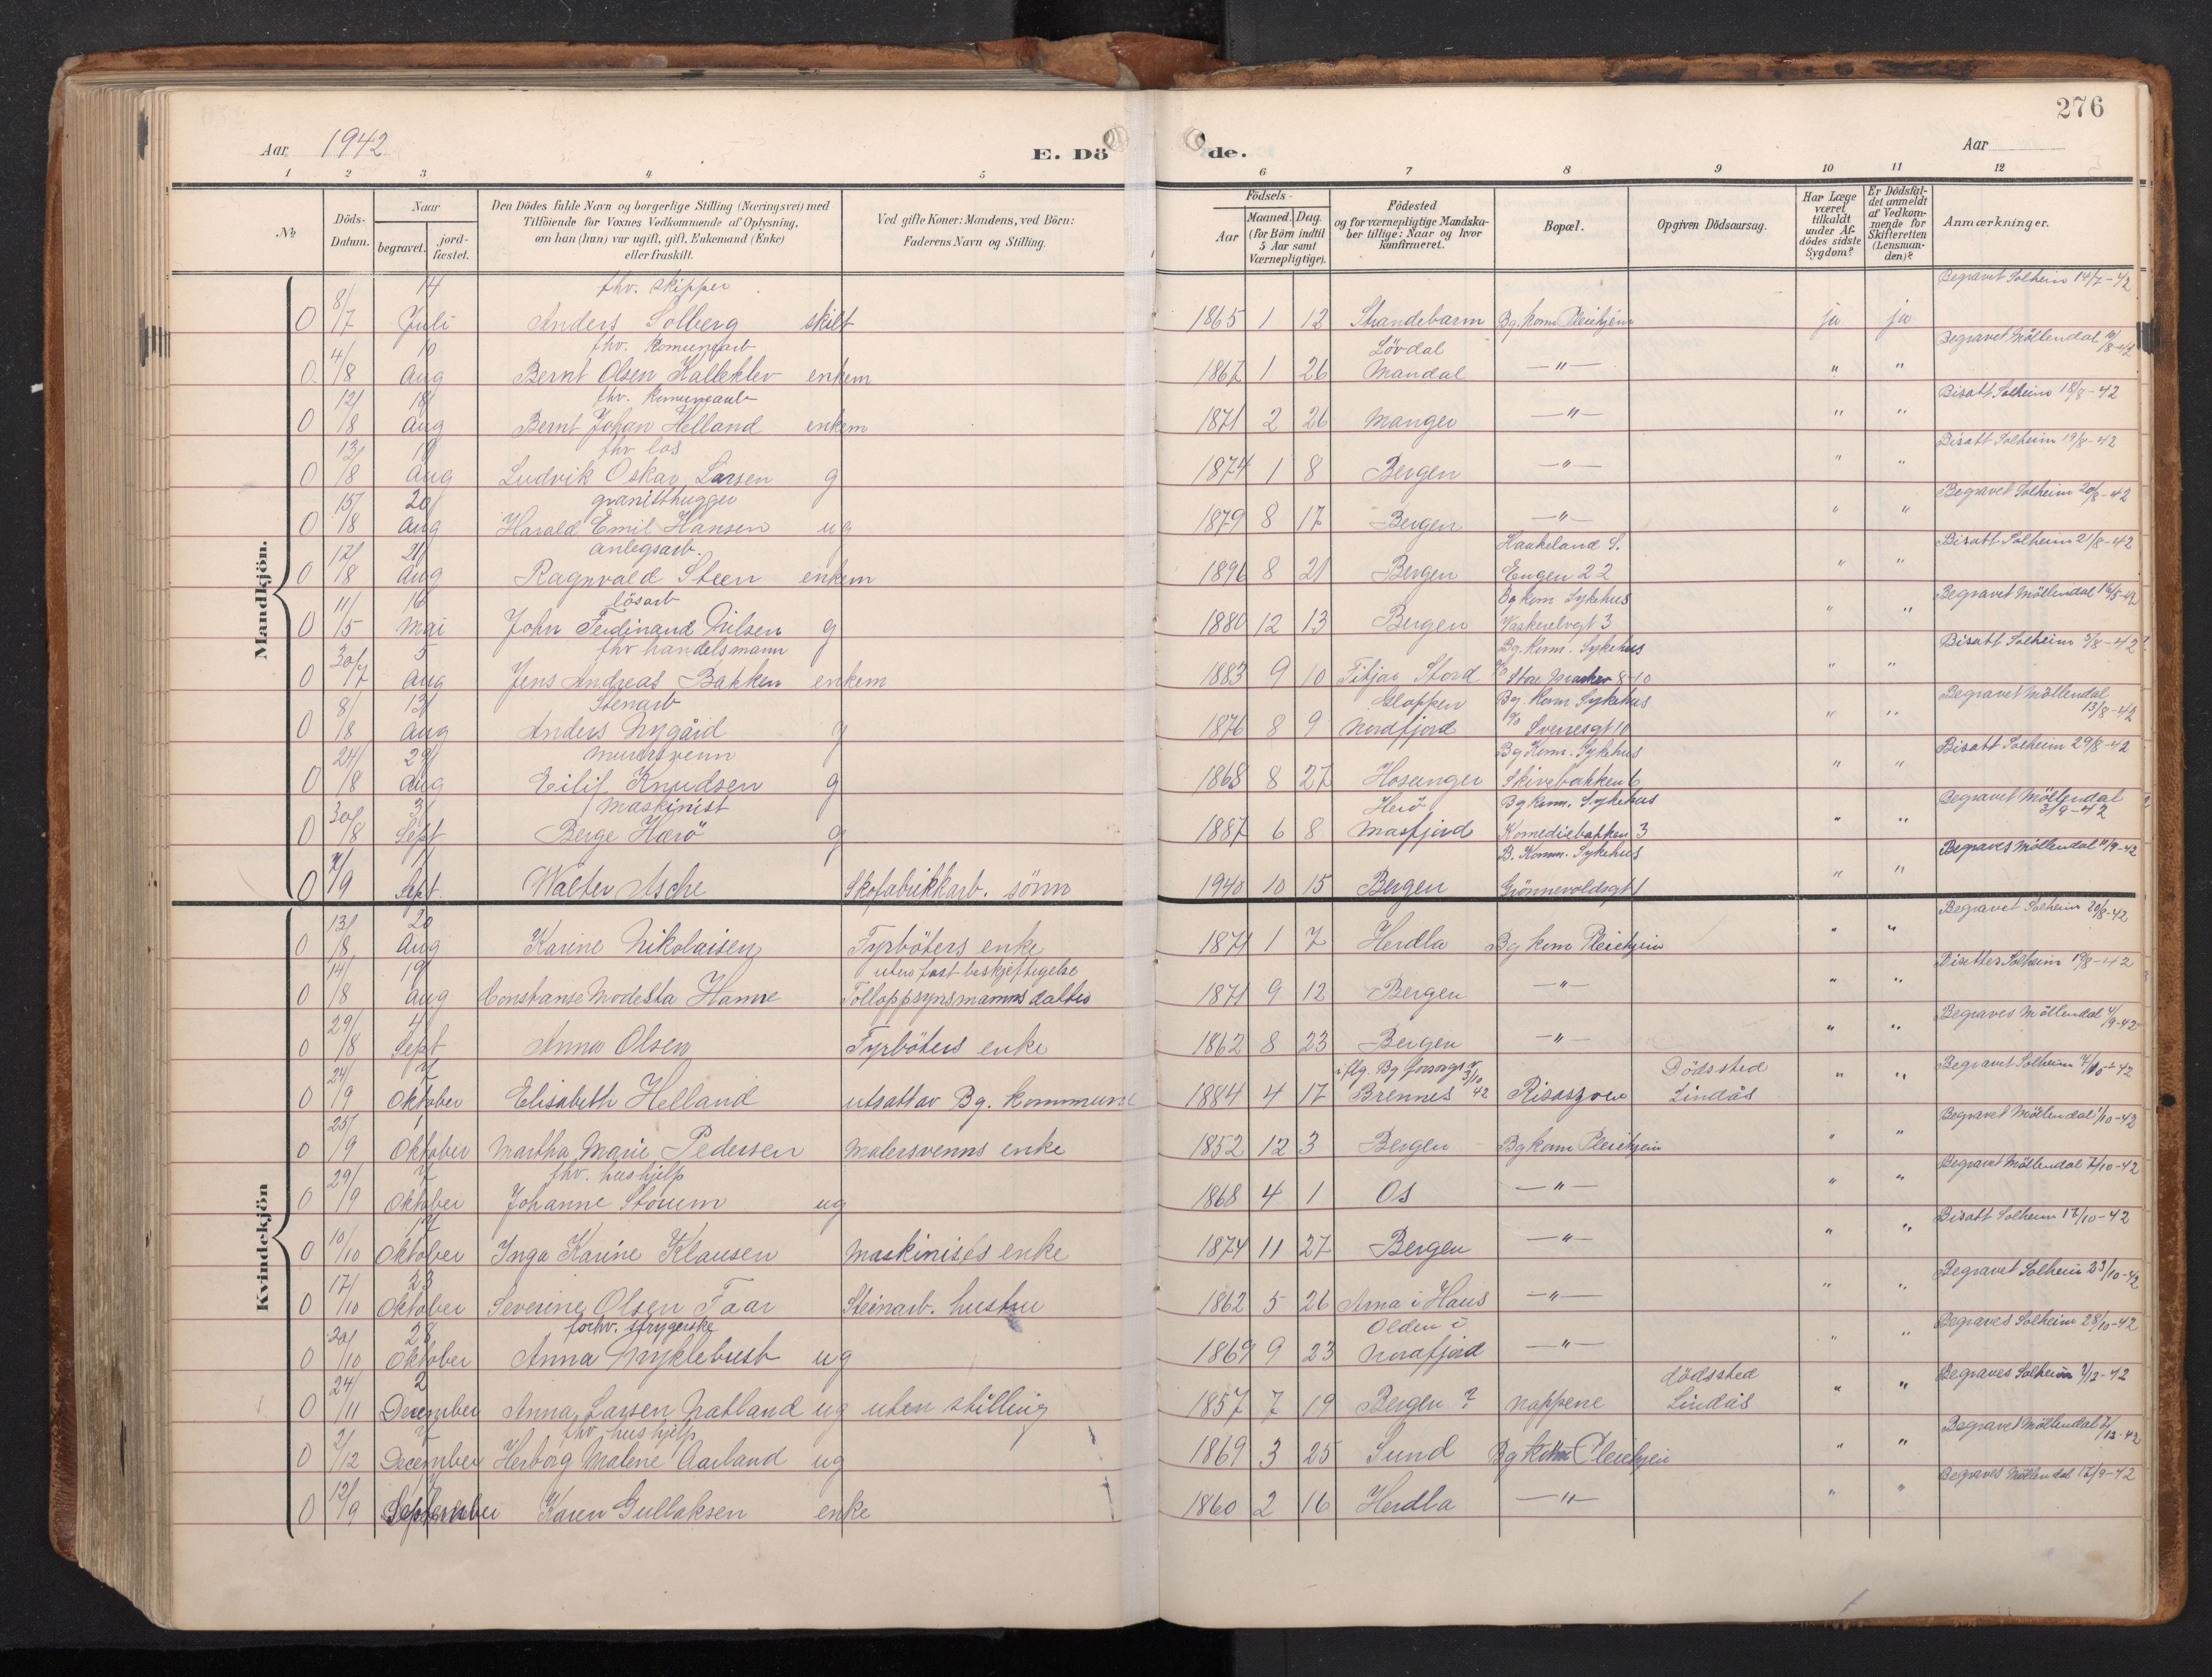 276
Aar 1942
E. Dö de.
Aar
1 2 3 4 5 6 7 8 9 10 11 12
No
Döds-Datum.
Naar
begravet. jord-fæstet.
Den Dödes fulde Navn og borgerlige Stilling (Næringsvei) med
Tilföiende for Voxnes Vedkommende af Oplysning,
om han (hun) var ugift, gift, Enkemand (Enke)
eller fraskilt.
Ved gifte Koner: Mandens, ved Börn:
Faderens Navn og Stilling.
Födsels-
Aar
Maaned. Dag.
(for Börn indtil
5 Aar samt
Værnepligtige).
Födested
og for værnepligtige Mandska-
ber tillige: Naar og hvor
konfirmeret.
Bopæl.
Opgiven Dödsaarsag.
Har Læge
været
tilkaldt
under Af-
dödes sidste
Sygdom?
Er Dödsfal-
det anmeldt
af Vedkom-
mende for
Skifteretten
(Lensman-
den)?
Anmærkninger.
Mandkjön.
0 8/7 14 Juli fhv. skipper Anders Solberg skilt 1865 1 12 Strandebarm Bg. kom Pleiehjem ja ja Begravet Solheim 14/7-42
0 4/8 10 Aug fhv. komunearb Bernt Olsen Kalleklev enkem 1867 1 26 Lövdal Mandal —"— " " Begravet Möllendal 10/8-42
0 12/8 18 Aug fhv. komunearb Bernt Johan Helland enkem 1871 2 26 Manger —"— " " Bisatt Solheim 18/8-42
0 13/8 19 Aug fhv los Ludvik Oskar Larsen g 1874 1 8 Bergen —"— " " Bisatt Solheim 19/8-42
0 15/8 20 Aug granitthugger Harald Emil Hansen ug 1879 8 17 Bergen —"— " " Begravet Solheim 20/8-42
0 17/8 21 Aug anlegsarb. Ragnvald Steen enkem 1896 8 21 Bergen Haukeland S. Engen 22 " " Bisatt Solheim 21/8-42
0 11/5 16 Mai lösarb John Ferdinand Nilsen g 1880 12 13 Bergen Bg kom Sykehus Vaskerelvgt 3 " " Begravet Möllendal 16/5-42
0 30/7 5 Aug fhv handelsmann Jens Andreas Bakken enkem 1883 9 10 Fitjar Stord Bg. kom. Sykehus Store Marken 8-10 " " Bisatt Solheim 5/8-42
0 8/8 13 Aug Stenarb Anders Nygård g 1876 8 9 Gloppen Nordfjord Bg. kom Sykehus Sverresgt 10 " " Begravet Möllendal 13/8-42
0 24/8 29 Aug Mursvenn Eilif Knudsen g 1868 8 27 Hosanger Bg Kom. Sykehus Skivebakken 6 " " Bisatt Solheim 29/8-42
0 30/8 3 Sept maskinist Berge Herö g 1887 6 8 Herö Masfjord Bg kom. Sykehus Komediebakken 3 " " Begravet Möllendal 3/9-42
0 7/9 11 Sept. Walter Asche Skofabrikkarb. sönn 1940 10 15 Bergen B. Komm. Sykehus Grönnevoldsgt 1 " " Begraves Möllendal 11/9-42
Kvindekjön
0 13/8 20 Aug Karine Nikolaisen Fyrböters enke 1871 1 7 Herdla Bg kom Pleiehjem " " Begravet Solheim 20/8-42
0 14/8 19 Aug Constanse Modesta Hanne uten fast beskjeftigelse Tolloppsynsmanns datter 1871 9 12 Bergen —"— " " Bisettes Solheim 19/8-42
0 29/8 4 Sept Anna Olsen Fyrböters enke 1862 8 23 Bergen —"— " " Begraves Möllendal 4/9-42
0 24/9 7 Oktober Elisabeth Helland utsatt av Bg. kommune 1884 4 17 iflg. Bg forsorgs 3/10 42 Brennes Risasjöen Dödssted Lindås " " Begravet Solheim 7/10-42
0 25/9 1 Oktober Martha Marie Pedersen Malersvenns enke 1852 12 3 Bergen Bg kom Pleiehjem " " Begravet Möllendal 1/10-42
0 29/9 7 Oktober fhv. hushjelp Johanne Storum ug 1868 4 1 Os —"— " " Begravet Möllendal 7/10-42
0 10/10 17 Oktober Inga Karine Klausen Maskinists enke 1874 11 27 Bergen —"— " " Bisatt Solheim 17/10-42
0 17/10 23 Oktober Severine Olsen Faar Steinarb. hustru 1862 5 26 Arna i Haus —"— " " Begravet Solheim 23/10-42
0 20/10 28 Oktober forhv. strygerske Anna Myklebust ug 1869 9 23 Olden i Nordfjord —"— " " Begraves Solheim 28/10-42
0 24/11 2 December Anna Larsen Natland ug uten stilling 1857 7 19 Bergen ? Noppene dödssted Lindås " " Begraves Solheim 2/12-42
0 2/12 7 December fhv. hushjelp Herborg Malene Aarland ug 1869 3 25 Sund Bg kom Pleiehjem " " Begravet Möllendal 7/12-42
0 12/9 17 September Karen Gullaksen enke 1860 2 16 Herdla —"— " " Begraves Möllendal 17/9-42